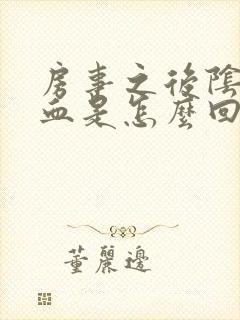 房事之後陰
血是怎麼回
董麗邊